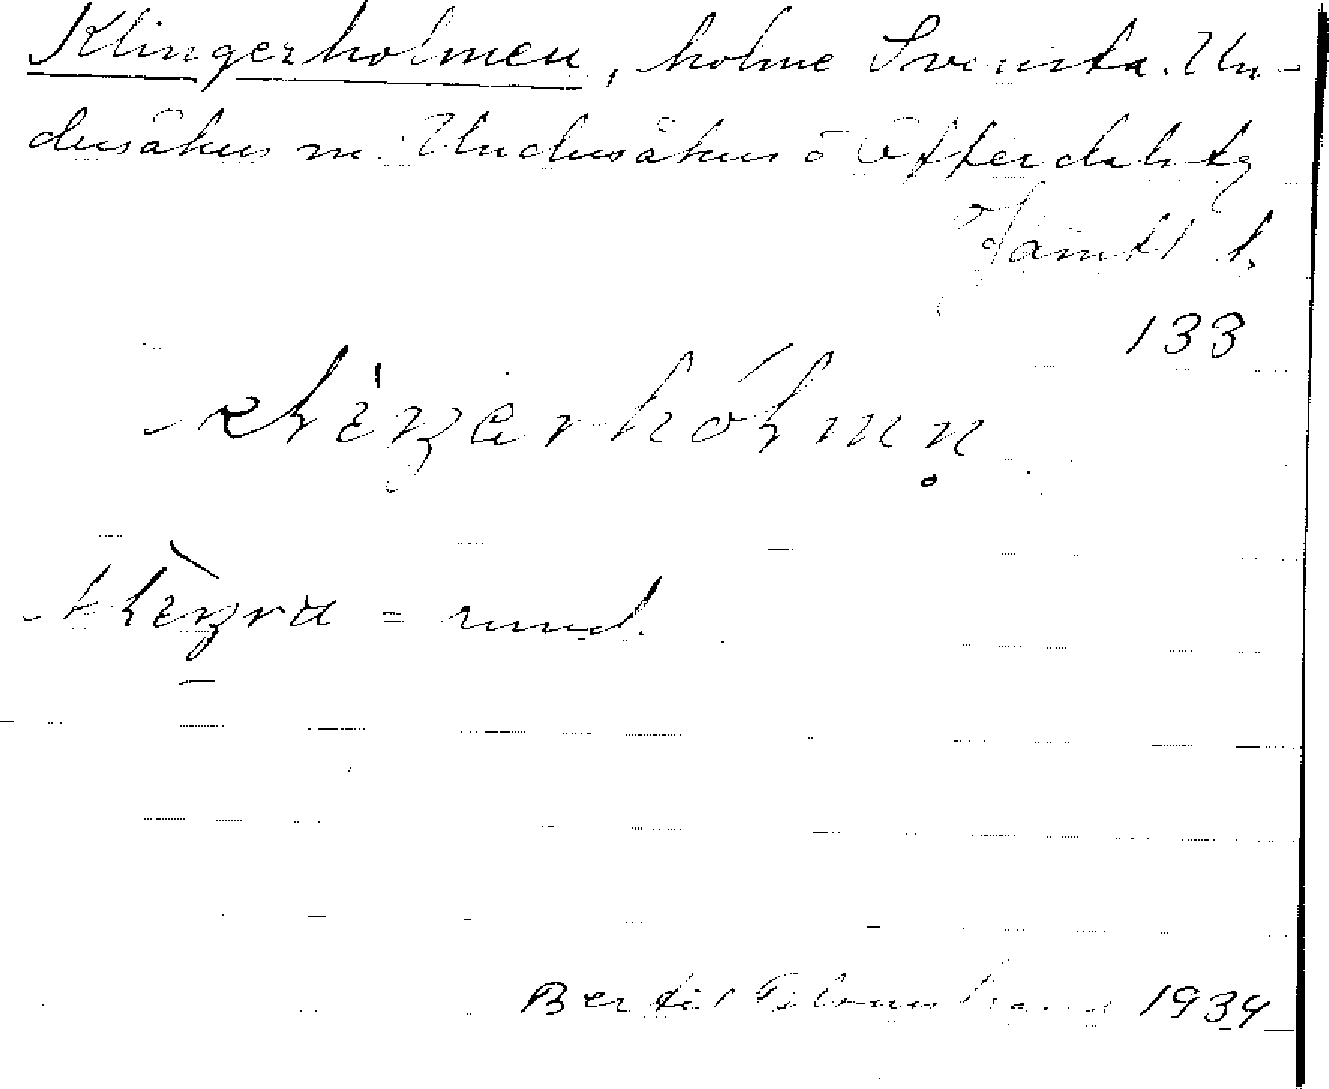 Klingerholmen, holme Svensta. Un-
dersåkers sn. Undersåkers o Offerdals tg
Jämtl l.
133
klìŋerhólmn̥
klìŋra = rund.
Bertil 1934